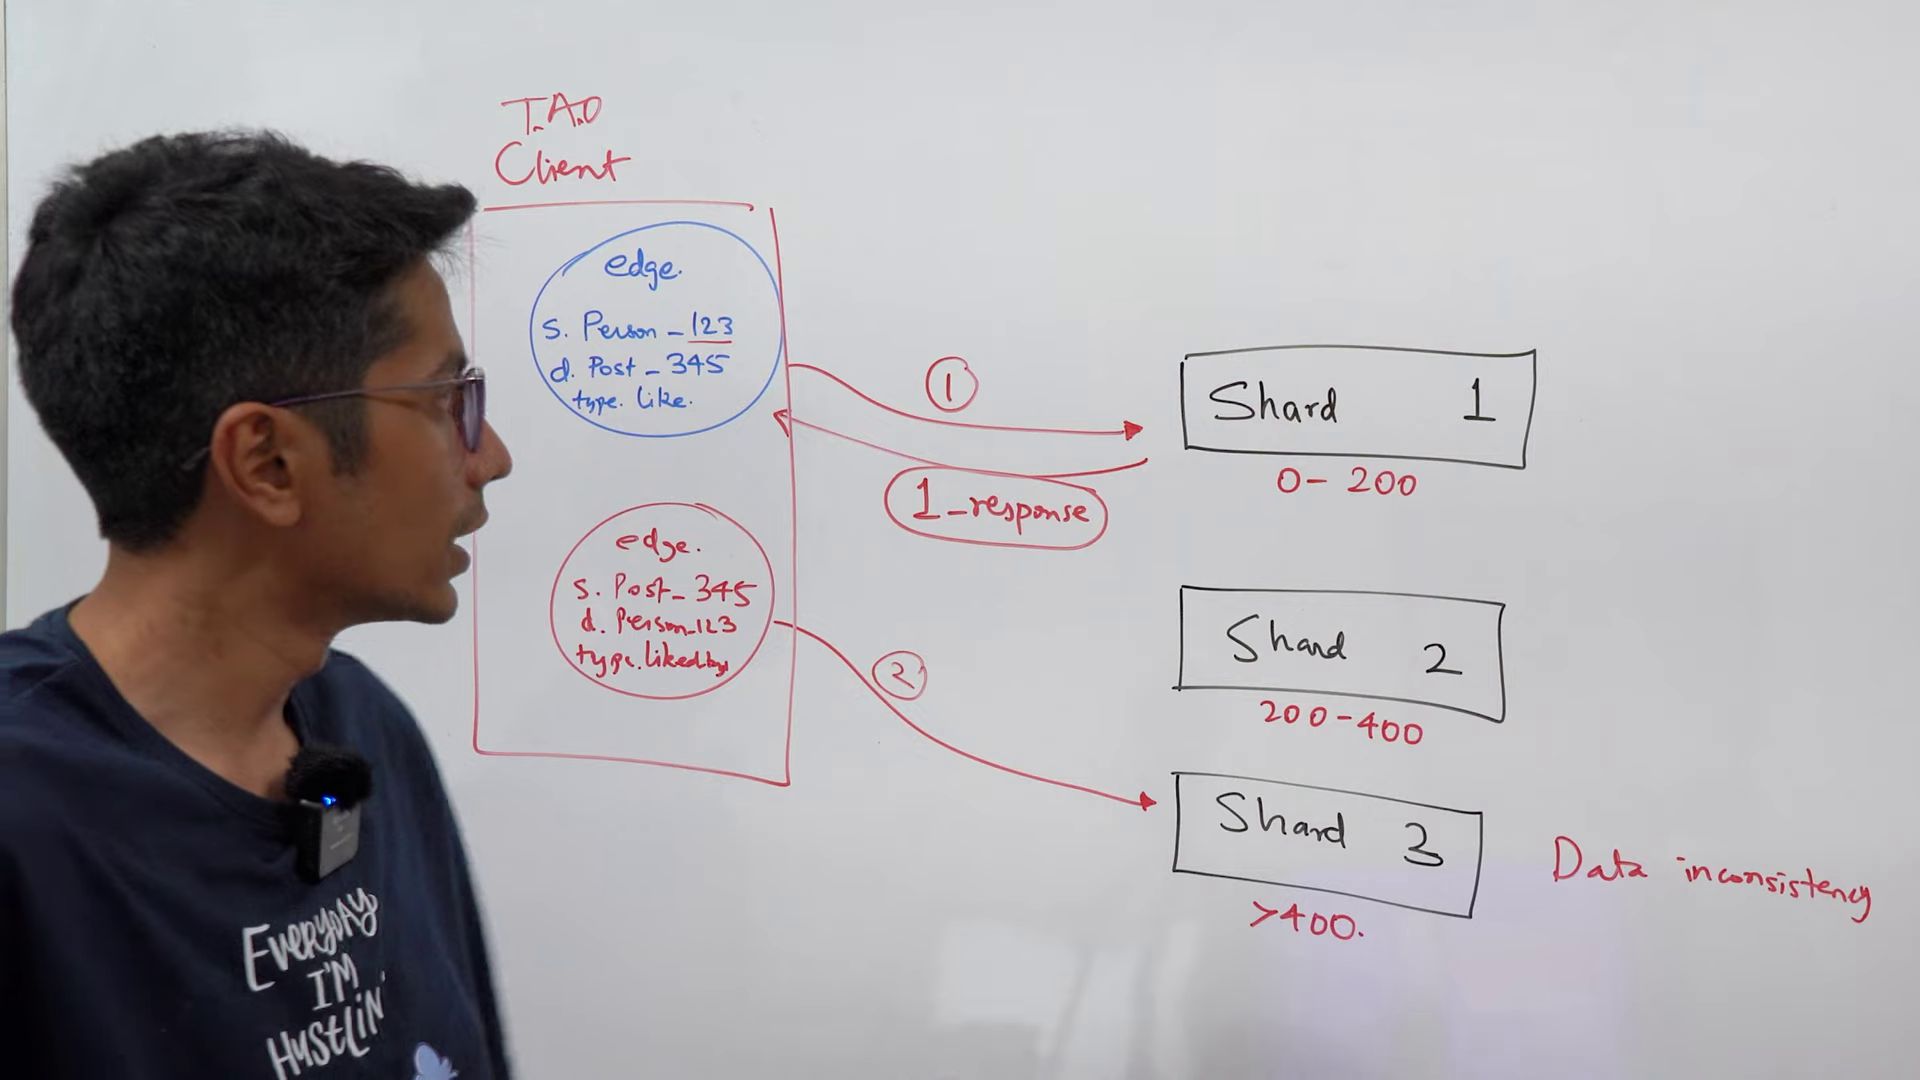 T.A.O
Client
edge.
s. Person - 123
d. Post - 345
type. like.
edge.
s. Post - 345
d. Person - 123
type. liked by
1
1-response
2
Shard 1
0 - 200
Shard 2
200 - 400
Shard 3
>400.
Data inconsistency
EVERYDAY
I'M
HUSTLIN'